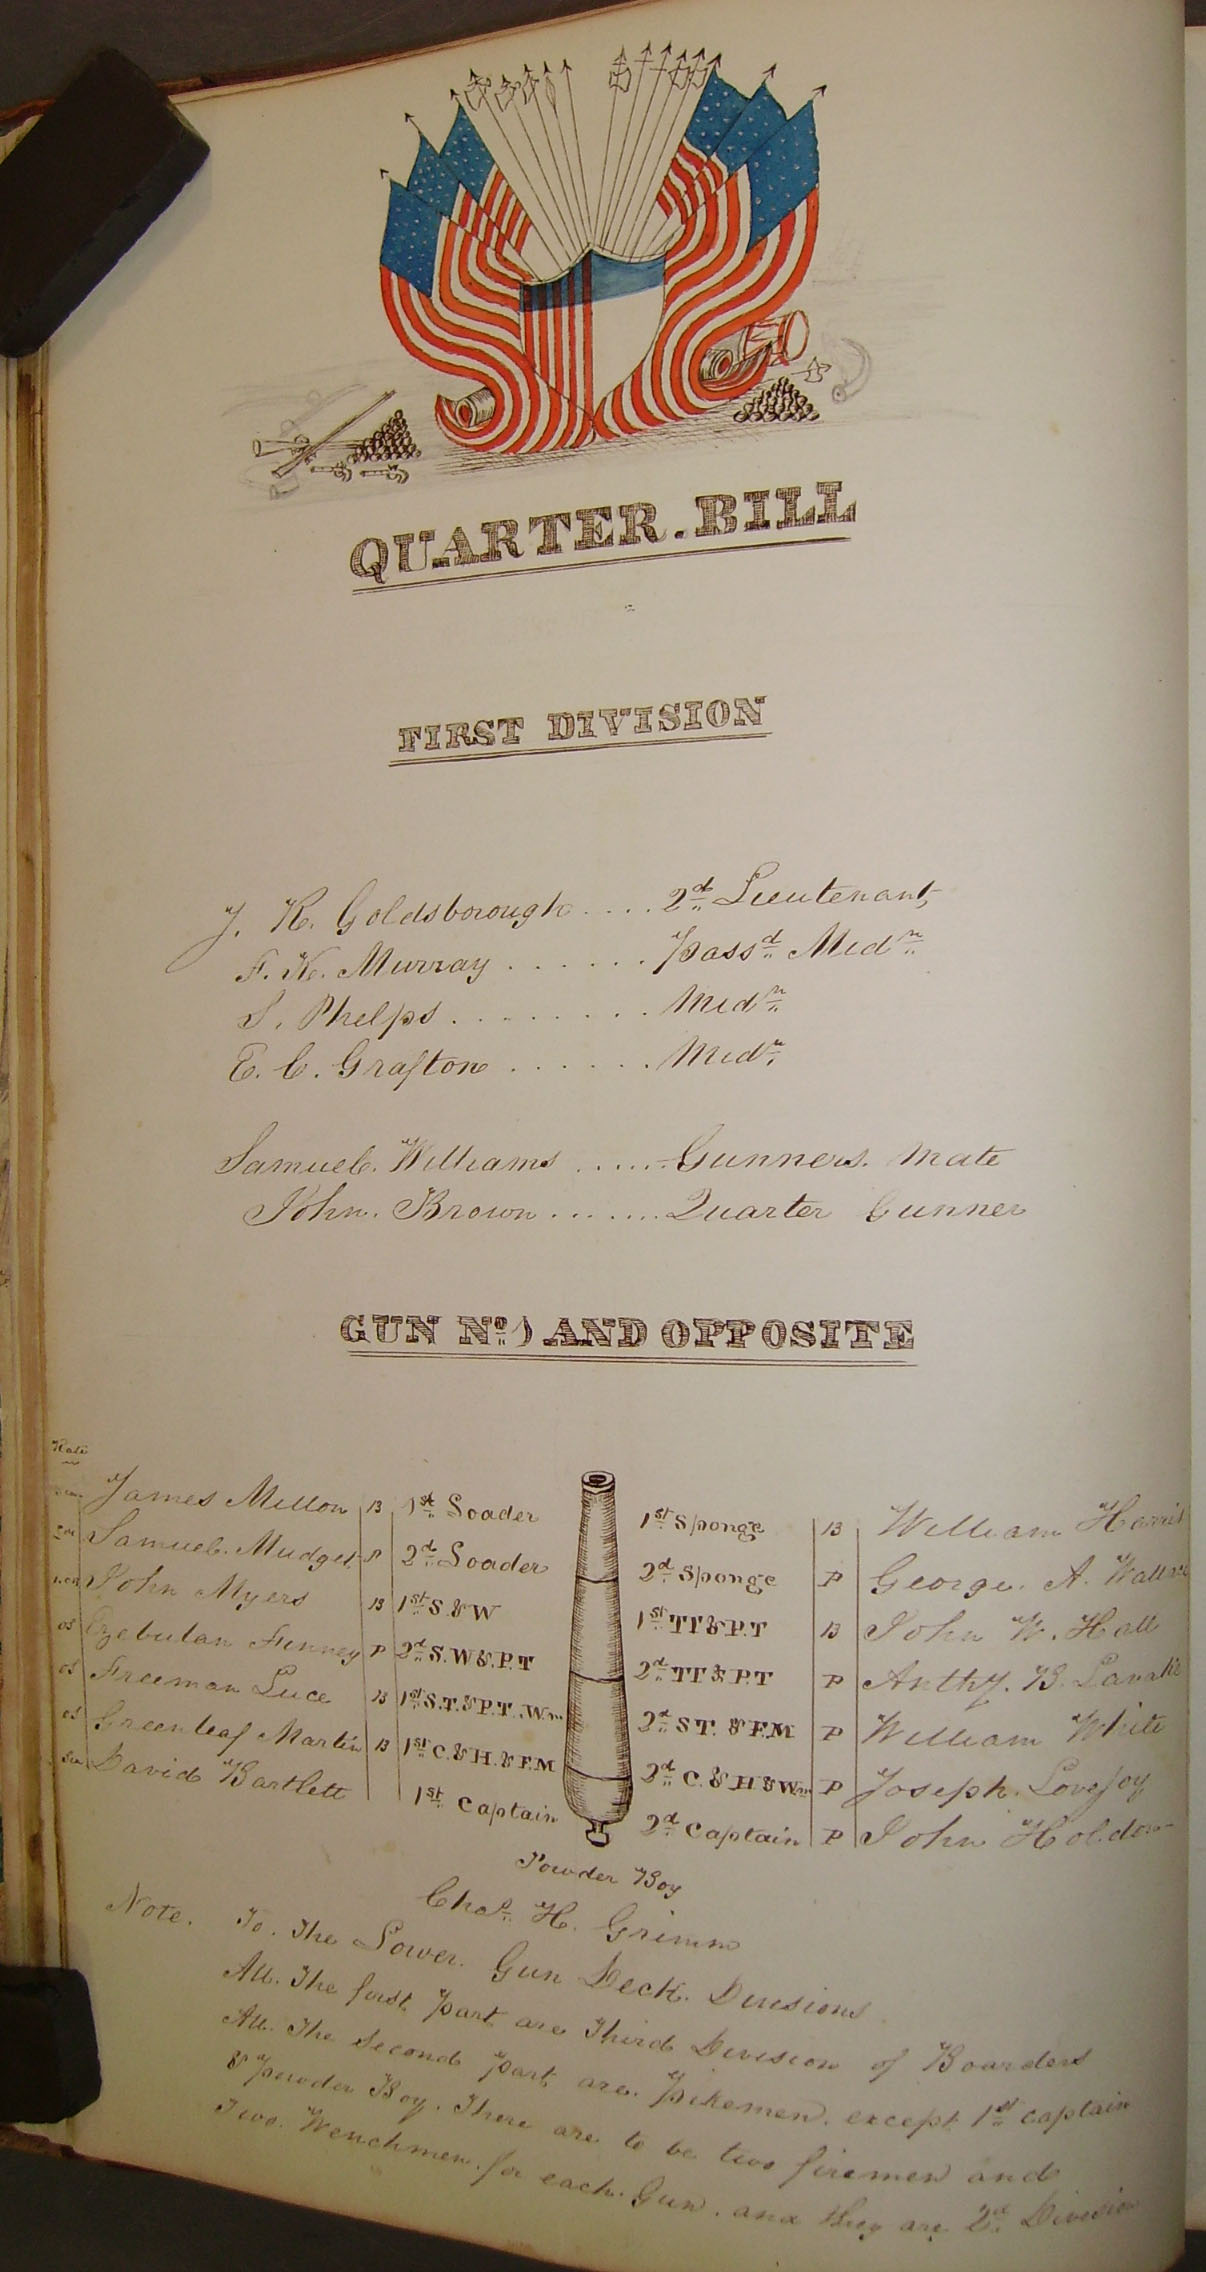 QUARTER. BILL
FIRST DIVISION
J. R. Goldsborough .... 2d Lieutenant
F. K. Murray ...... Passd Midn
S. Phelps ........ Midn
E. C. Grafton ...... Midn
Samuel. Williams ...... Gunners. Mate
John. Brown ....... Quarter Gunner
GUN No. 1 AND OPPOSITE
Rate
James Millon B 1st Loader 1st Sponge B William Harris
Samuel. Mudget P 2d Loader 2d Sponge P George. A. Wallace
John Myers B 1st S. & W 1st TT & P.T B John W. Hall
OS Ezebulan Finney P 2d S. W & P. T 2d TT & P.T P Anthy. B.
OS Freeman Luce B 1st S.T. & P.T. Wn 2d ST. & F.M P William White
OS Greenleaf Martin B 1st C. & H. & F.M 2d C. & H & Wn P Joseph. Lovejoy
Sea David Bartlett 1st Captain 2d Captain P John Holden
Powder Boy
Chas. H. Grimm
Note. To. The Lower. Gun Deck. Divisions
All. The first part are Third Division of Boarders
All. The Second part are. Pikemen. except 1st captain
& Powder Boy. There are to be two firemen and
Two. Wenchmen. for each. Gun. and they are 2d Division